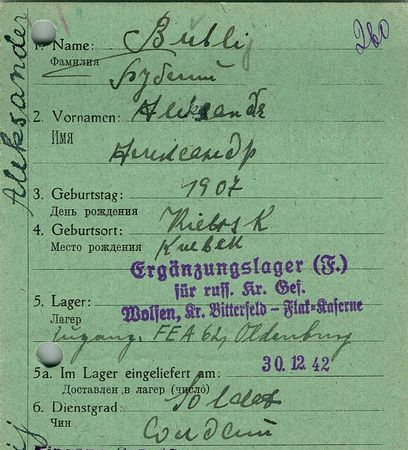 Aleksander
260
1. Name: Bublij
Фамилия
Бублий
2. Vornamen: Aleksandr
Имя
Александр
3. Geburtstag: 1907
День рождения
4. Geburtsort:
Место рождения
Ergänzungslager (F.)
für russ. Kr. Gef.
Wolfen, Kr. Bitterfeld – Flak-Kaserne
5. Lager:
Лагерь
Zugang, FEA 62, Oldenburg
30.12.42
5a. Im Lager eingeliefert am:
Доставлен в лагерь (число)
6. Dienstgrad: Soldat
Чин
Солдат